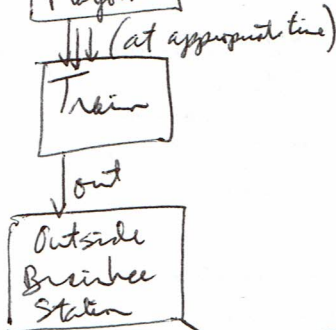 (at appropriate time)
Train
out
Outside
Station